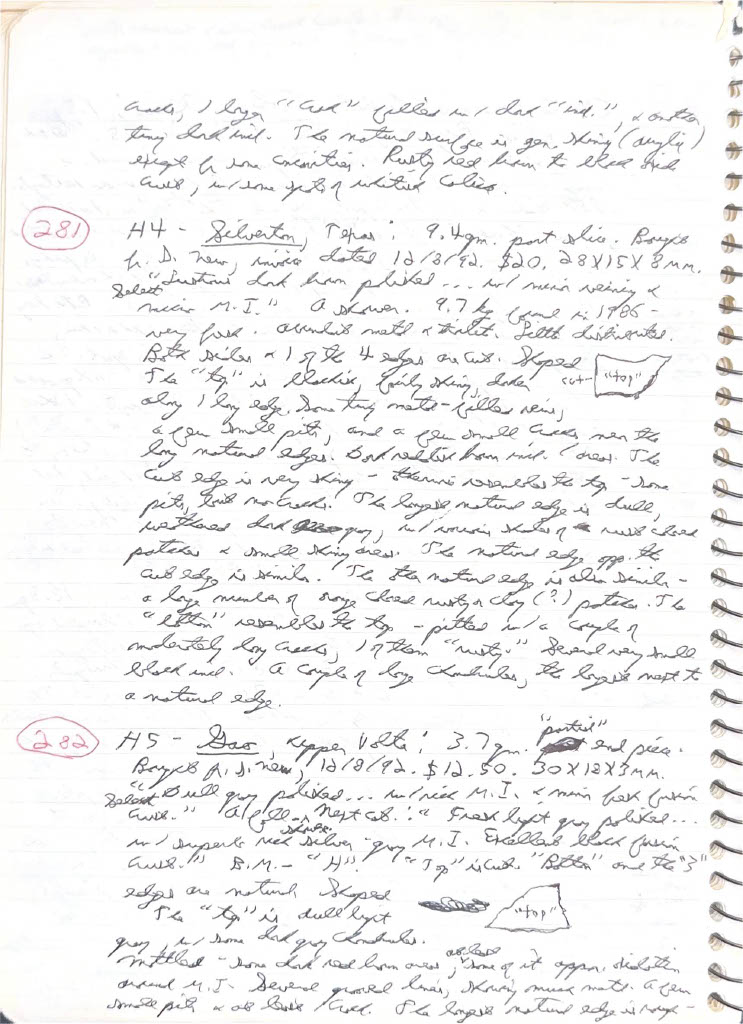 cracks, 1 large "crack" filled w/ dark "incl.", & another
tiny dark incl. The natural surface is gen. shiny (oxyliz)
except for some concavities. Rusty red brown to black
crust, w/ some spots of whitish caliche.
281 H4 - Silverton, Texas; 9.4gm. part slice. Bought
fr. D. New, invoice dated 12/8/92. $20. 28X15X8mm.
"Lustrous dark brown polished... w/ minor veining &
Select micro M.I." A shower. 9.7 kg found in 1986 -
very fresh. Little distributed.
Both sides & 1 of the 4 edges are cut. Shaped
cut- "top"
The "top" is blackish, fairly shiny, darker
along 1 long edge. Some tiny metal-filled veins,
a few small pits, and a few small cracks near the
long natural edges. Dark reddish brown incl. / areas. The
cut edge is very shiny - otherwise resembles the top - some
pits, but no cracks. The longest natural edge is dull,
weathered dark gray, w/ various shades of rust colored
patches & small shiny areas. The natural edge opp. the
cut edge is similar. The other natural edge is also similar -
a large number of orange colored rusty or clay (?) patches. The
"bottom" resembles the top - pitted w/ a couple of
moderately long cracks, 1 of them "rusty." Several very small
black incl. A couple of large chondrules, the longest next to
a natural edge.
282 H5 - Gao, Upper Volta; 3.7gm. "partial" end piece.
Bought fr. D. New, 12/8/92. $12.50. 30X18X3mm.
Select "Dull gray polished... w/ rich M.I. & minor fresh fusion
crust." A fall - shower. Next cat.: "Fresh light gray polished...
w/ superb rich silver-gray M.I. Excellent black fusion
crust." B.M. - "H". "Top" is cut. "Bottom" and the "3"
edges are natural. Shaped
"top"
The "top" is dull light
gray, w/ some dark gray chondrules.
Mottled - some dark red brown areas, at least some of it appar. oxidation
around M.I. Several grooved lines, showing much metal. A few
small pits & at least 1 crack. The longest natural edge is rough -